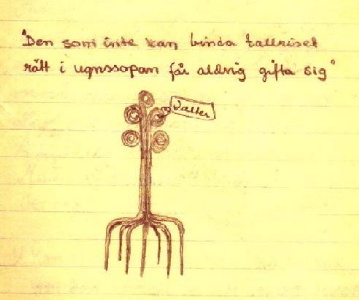 "Den som inte kan binda tallriset
rätt i ugnssopan får aldrig gifta sig"